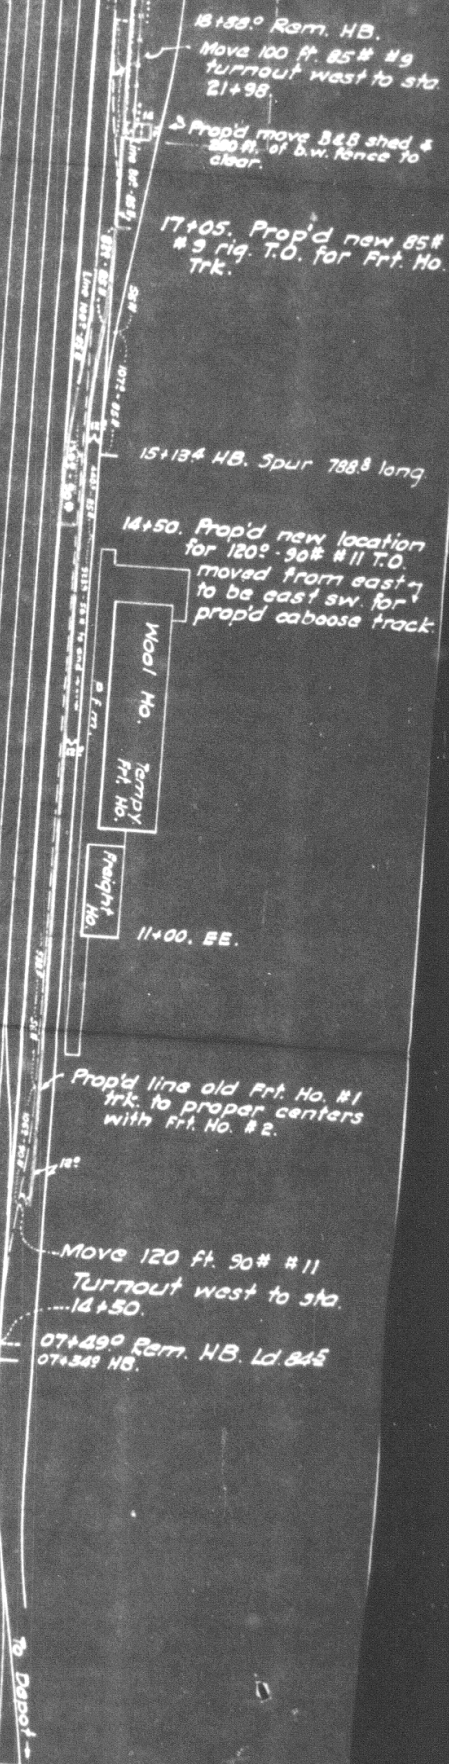 18+88.0 Rem. HB.
Move 100 ft. 85# #9
turnout west to sta.
21+98.
Prop'd move B&B shed &
280 ft. of b.w. fence to
clear.
17+05. Prop'd new 85#
#9 rig. T.O. for Frt. Ho.
Trk.
56#
15+13.4 HB. Spur 788.8 long
14+50. Prop'd new location
for 120.0 - 90# #11 T.O.
moved from east
to be east sw. for
prop'd caboose track.
Wool Ho. Tempy
Frt. Ho.
Freight
Ho.
11+00. EE.
Prop'd line old Frt. Ho. #1
trk. to proper centers
with Frt. Ho. #2.
Move 120 ft. 90# #11
Turnout west to sta.
14+50.
07+49.0 Rem. HB. Ld. 84.5
07+34.9 HB.
To Depot